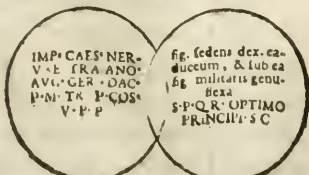 IMP· CAES· NER-
VAE TRAIANO·
AVG· GER · DAC·
P·M· TR P·COS·
V · P · P
fig. sedens dex. ca-
duceum, & sub ea
fig militaris genu-
flexa
S·P·Q·R· OPTIMO
PRINCIPI· S C